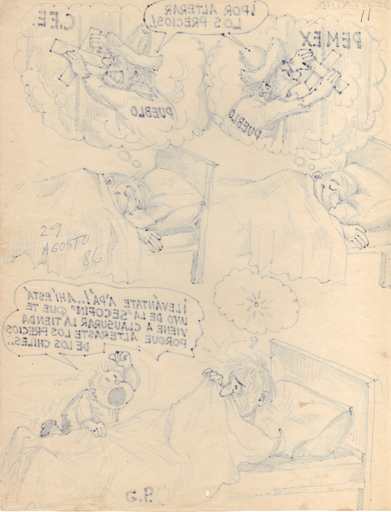 11
C.F.E.
¡POR ALTERAR
LOS PRECIOS!
PEMEX
PUEBLO
PUEBLO
29
AGOSTO
86
¡LEVÁNTATE A'PÁ!..AHÍ ESTÁ
UNO DE LA "SECOFIN" QUE TE
VIENE A CLAUSURAR LA TIENDA
PORQUE ALTERASTE LOS PRECIOS
DE LOS CHILES..